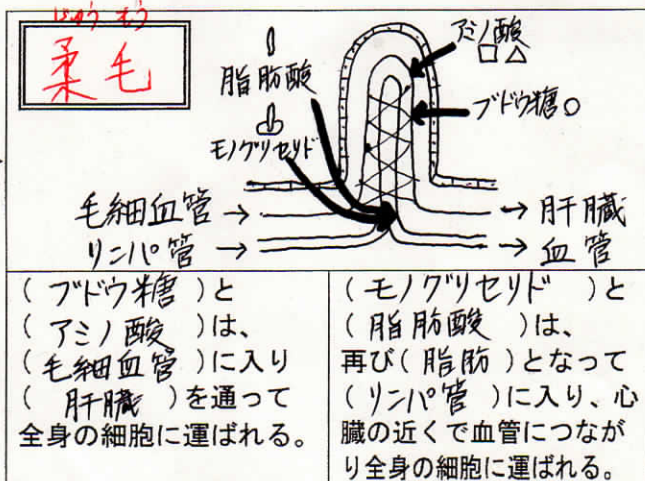 じゅうもう
柔毛
脂肪酸
モノグリセリド
アミノ酸
□△
ブドウ糖○
毛細血管→
リンパ管→
→肝臓
→血管
(ブドウ糖)と
(アミノ酸)は、
(毛細血管)に入り
(肝臓)を通って
全身の細胞に運ばれる。
(モノグリセリド)と
(脂肪酸)は、
再び(脂肪)となって
(リンパ管)に入り、心
臓の近くで血管につなが
り全身の細胞に運ばれる。